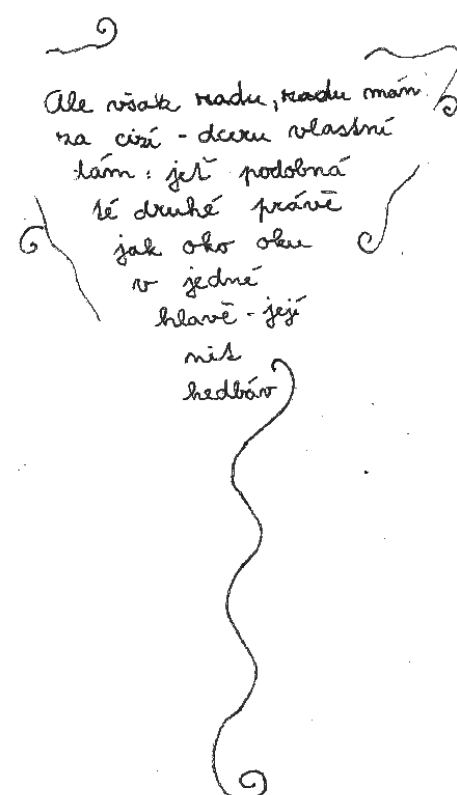 Ale však radu, radu mám
za cizí - dceru vlastní
tám: jeť podobná
té druhé právě
jak oko oku
v jedné
hlavě - její
nit
hedbáv